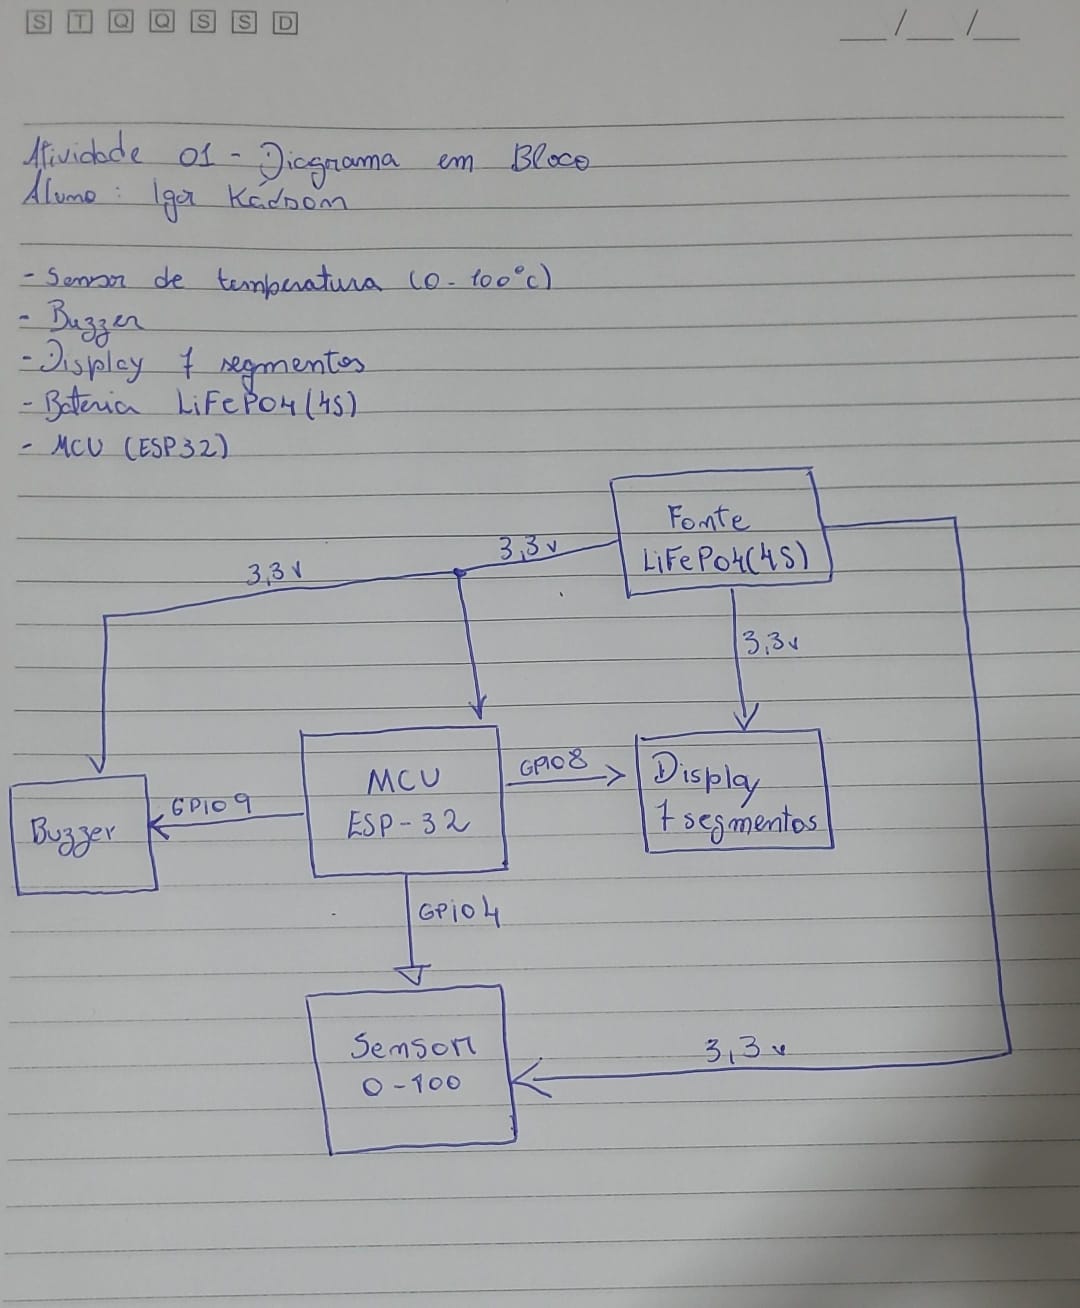 S T Q Q S S D
__/__/__
Atividade 01 - Diagrama em Bloco
Aluno: Igor Kádson
- Sensor de temperatura (0-100°c)
- Buzzer
- Display 7 segmentos
- Bateria LiFePO4(4S)
- MCU (ESP32)
Fonte
LiFePo4(4S)
3,3v
3,3v
3,3v
MCU
ESP-32
GPIO8
Display
7 segmentos
GPIO9
Buzzer
GPiO4
Sensor
0-100
3,3v